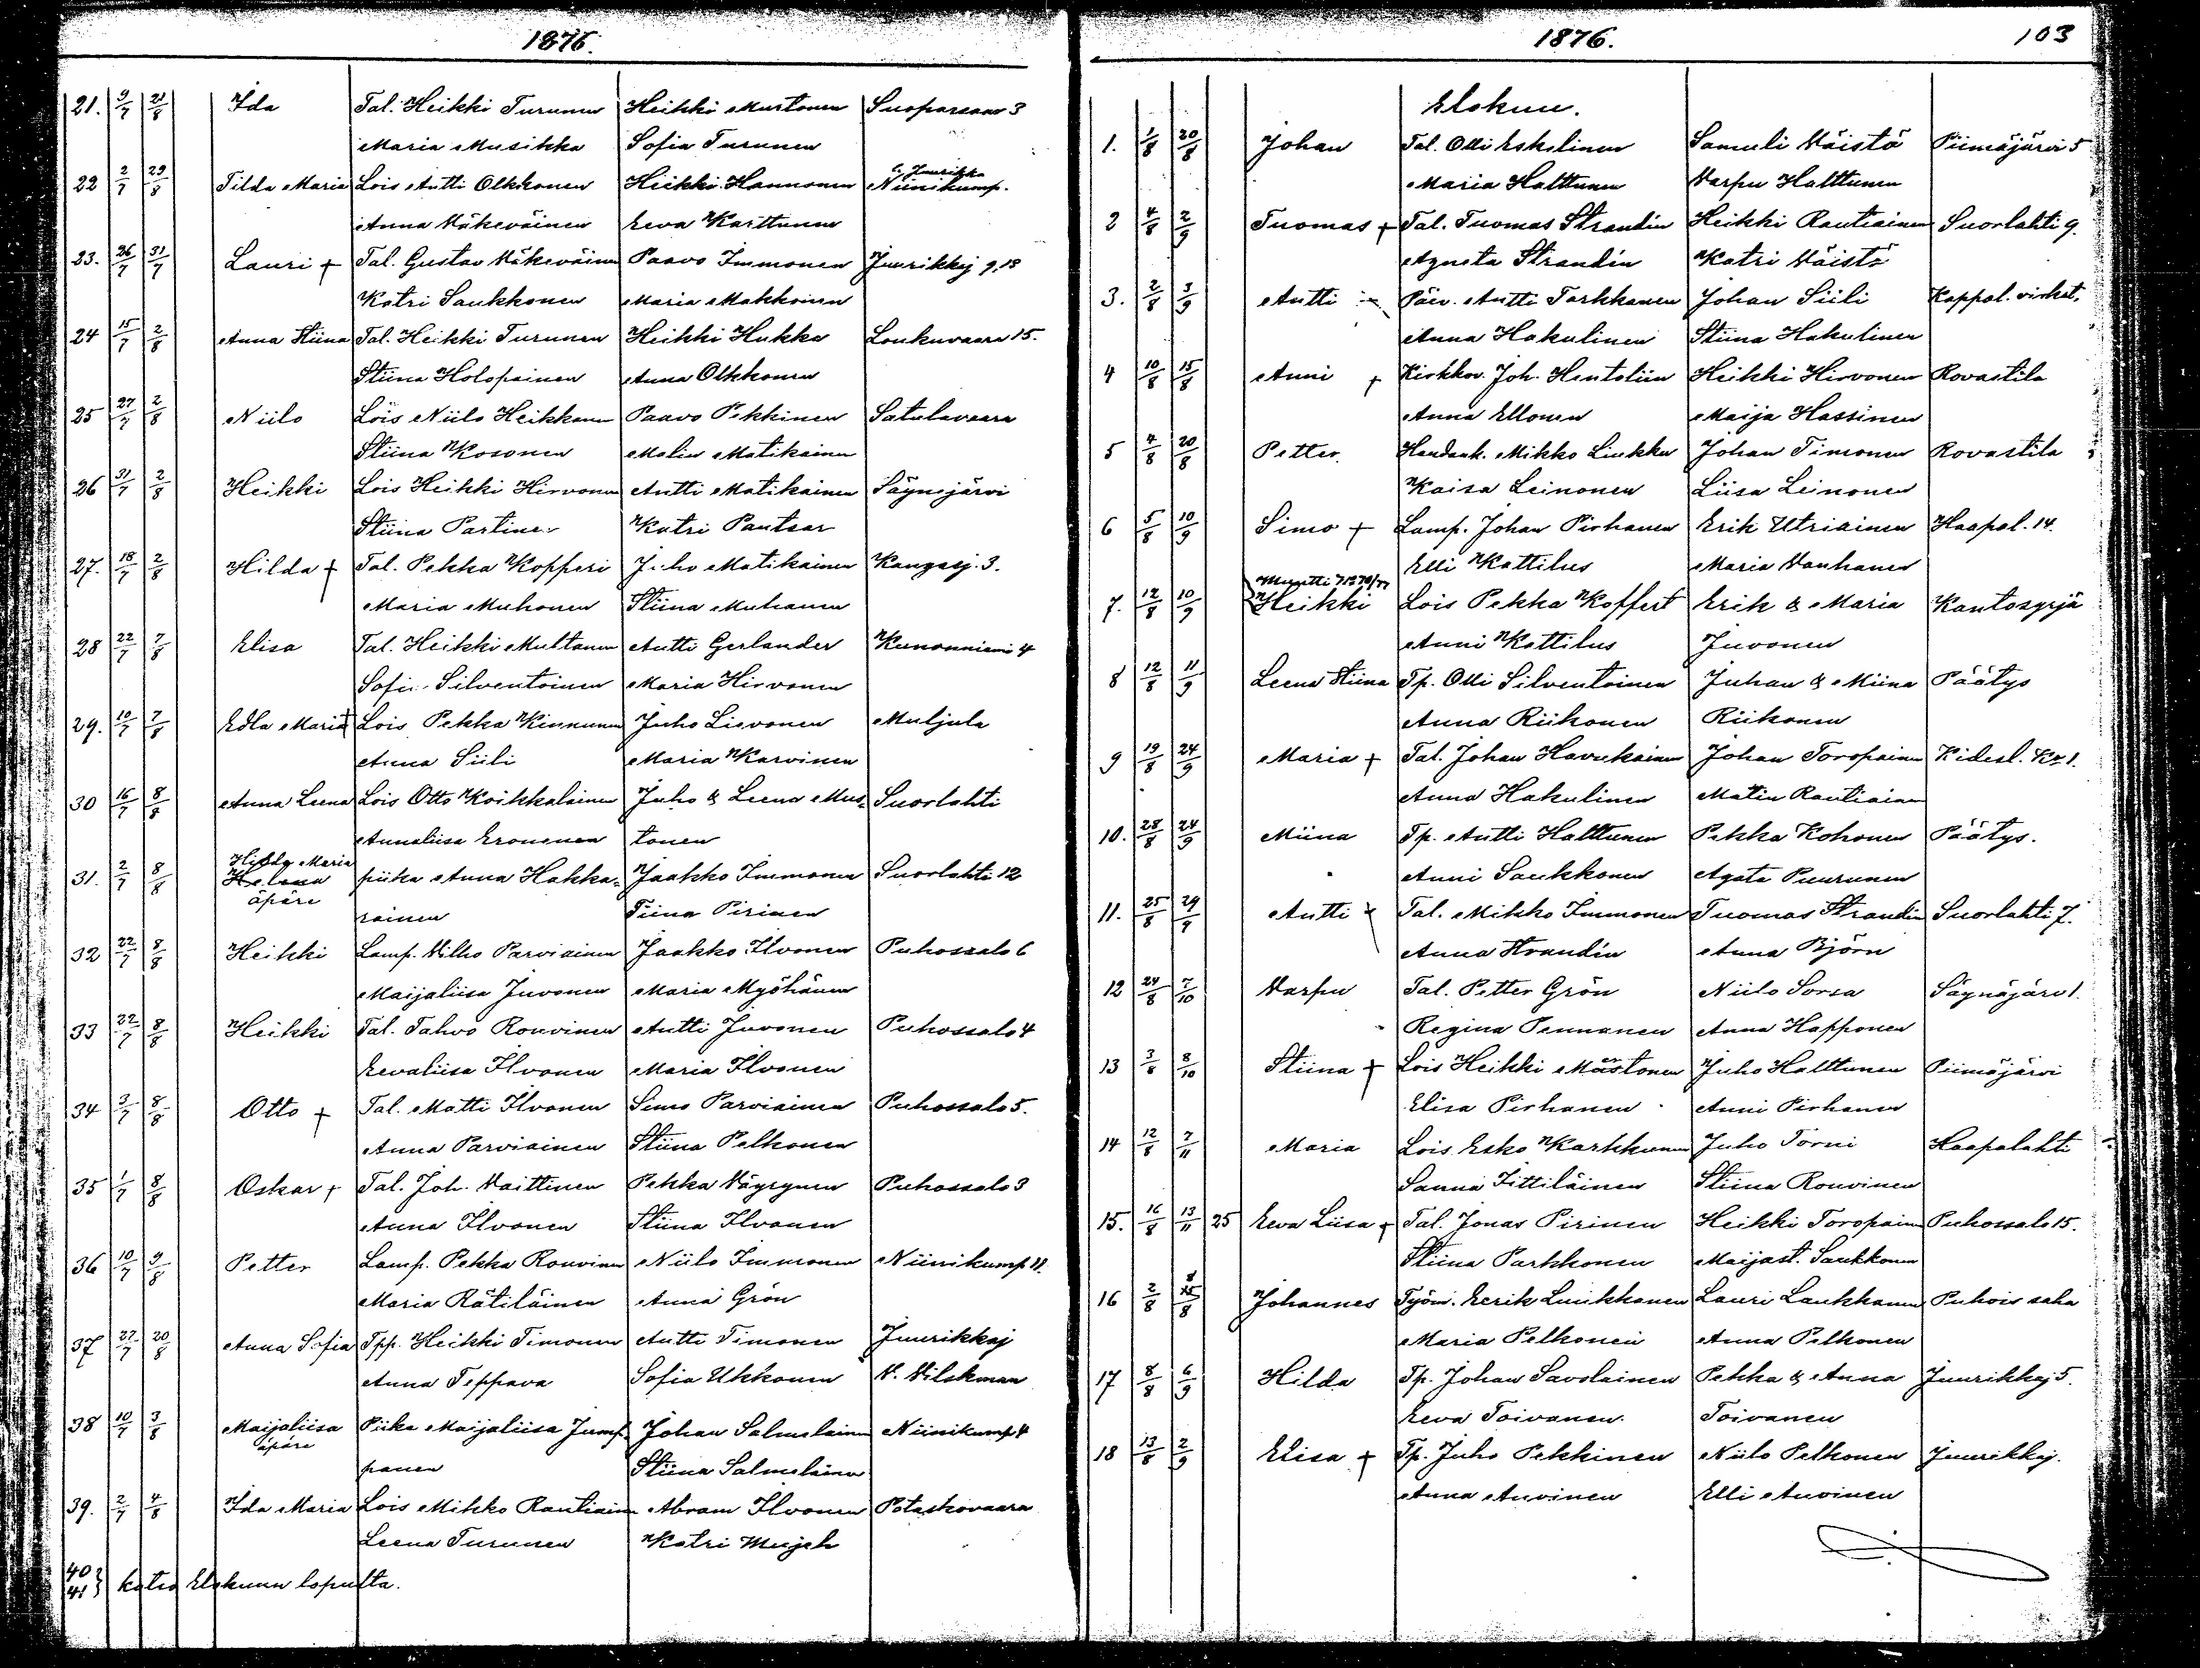 1876.
21. 9/7 21/8 Ida Tal. Heikki Turunen Heikki Murtonen Suoparsaar 3
Maria Musikka Sofia Turunen
22 2/7 29/8 Tilda Maria Lois Antti Olkkonen Heikki Hannonen Niinikump.
Anna Väkeväinen Eeva Karttunen
23. 26/7 31/7 Lauri + Tal. Gustav Väkeväinen Paavo Immonen Juurikkaj 9,13
Katri Saukkonen Maria Makkoinen
24 15/7 2/8 Anna Stiina Tal. Heikki Turunen Heikki Hukka Loukuvaara 15.
Stiina Holopainen Anna Olkkonen
25 27/7 2/8 Niilo Lois Niilo Heikkonen Paavo Pekkinen Satulavaara
Stiina Kosonen Malin Matikainen
26 31/7 2/8 Heikki Lois Heikki Hirvonen Antti Matikainen Säynejärvi
Stiina Partinen Katri Pantsar
27. 18/7 2/8 Hilda + Tal. Pekka Kopperi Juho Matikainen Kangasj. 3.
Maria Muhonen Stiina Muhonen
28 22/7 7/8 Elisa Tal. Heikki Multanen Antti Gerlander Kunonniemi 4
Sofia Silventoinen Maria Hirvonen
29. 10/7 7/8 Edla Maria + Lois Pekka Kinnunen Juho Lievonen Muljula
Anna Siili Maria Karvinen
30 16/7 8/8 Anna Leena Lois Otto Koikkalainen Juho & Leena Mus- Suorlahti
Annaliisa Eronenen tonen
31. 2/7 8/8 Hilda Maria
Helena piika Anna Hakka- Jaakko Immonen Suorlahti 12
äpäre
rainen Tiina Pirinen
32 22/7 8/8 Heikki Lamp. Vilho Parviainen Jaakko Ilvonen Puhossalo 6
Maijaliisa Juvonen Maria Myöhänen
33 22/7 8/8 Heikki Tal. Tahvo Rouvinen Antti Juvonen Puhossalo 4
Eevaliisa Ilvonen Maria Ilvonen
34 3/7 8/8 Otto + Tal. Matti Ilvonen Simo Parviainen Puhossalo 5.
Anna Parviainen Stiina Pelkonen
35 1/7 8/8 Oskar + Tal. Joh. Vaittinen Pekka Väyrynen Puhossalo 3
Anna Ilvonen Stiina Ilvonen
36 10/7 9/8 Petter Lamp. Pekka Rouvinen Niilo Immonen Niinikump 11.
Maria Rätiläinen Anna Grön
37 27/7 20/8 Anna Sofia Tpp. Heikki Timonen Antti Timonen Juurikkaj
Anna Teppava Sofia Ukkonen V. Vilskman
38 10/7 3/8 Maijaliisa Piika Maijaliisa Jump- Johan Salmelainen Niinikump 4
äpäre
panen Stiina Salmelainen
39. 2/7 4/8 Ida Maria Lois Mikko Rautiainen Abram Ilvonen Potaskavaara
Leena Turunen Katri Mujeh
40
41 } katso Elokuun lopulta.
1876. 103
Elokuu.
1. 1/8 20/8 Johan Tal. Olli Eskelinen Samuli Väistö Piimäjärvi 5
Maria Halttunen Varpu Halttunen
2 4/8 2/9 Tuomas + Tal. Tuomas Strandin Heikki Rautiainen Suorlahti 9.
Agneta Strandin Katri Väistö
3. 2/8 3/9 Antti Päiv. Antti Tarkkanen Johan Siili Kappal. virkat.
Anna Hakulinen Stiina Hakulinen
4 10/8 15/8 Anni + Kirkkov. Joh. Hentoliin Heikki Hirvonen Rovastila
Anna Ellonen Maija Hassinen
5 4/8 20/8 Petter Handank. Mikko Liukku Johan Timonen Rovastila
Kaisa Leinonen Liisa Leinonen
6 5/8 10/9 Simo + Lamp. Johan Pirhanen Erik Utriainen Haapal. 14.
Elli Kattilus Maria Vanhanen
7. 12/8 10/9 Heikki Lois Pekka Koffert Erik & Maria Kantosyrjä
Anni Kattilus Juvonen
8 12/8 11/9 Leena Stiina Tp. Olli Silventoinen Juhan & Miina Päätys
Anna Riikonen Riikonen
9 19/8 24/9 Maria + Tal. Johan Havukainen Johan Toropainen Kidesl. Kr 1.
Anna Hakulinen Matin Rautiainen
10. 28/8 24/9 Miina Tp. Antti Halttunen Pekka Kohonen Päätys.
Anni Saukkonen Agata Puurunen
11. 25/8 29/9 Antti Tal. Mikko Immonen Tuomas Strandin Suorlahti 7.
Anna Strandin Anna Björn
12 24/8 7/10 Varpu Tal. Petter Grön Niilo Sorsa Säynäjärv 1.
Regina Pennanen Anna Happonen
13 3/8 8/10 Stiina + Lois Heikki Mustonen Juho Halttunen Piimäjärvi
Elisa Pirhanen Anni Pirhanen
14 12/8 7/11 Maria Lois Esko Karkkunen Juho Törni Haapalahti
Sanna Tittiläinen Stiina Rouvinen
15. 16/8 13/11 25 Eeva Liisa + Tal. Jonas Pirinen Heikki Toropainen Puhossalo 15.
Stiina Parkkonen Maijast. Saukkonen
16 2/8 Johannes Työm. Eerik Luukkanen Lauri Laukkanen Puhois saha
Maria Pelkonen Anna Pelkonen
17 8/8 6/9 Hilda Tp. Johan Savolainen Pekka & Anna Juurikkaj 5.
Eeva Toivanen Toivanen
18 13/8 2/9 Elisa + Tp. Juho Pekkinen Niilo Pelkonen Juurikkaj.
Anna Auvinen Elli Auvinen